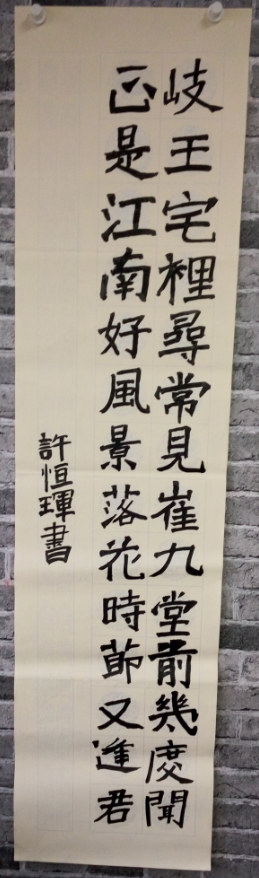 岐王宅裡尋常見崔九堂前幾度聞
正是江南好風景落花時節又逢君
許恒琿書